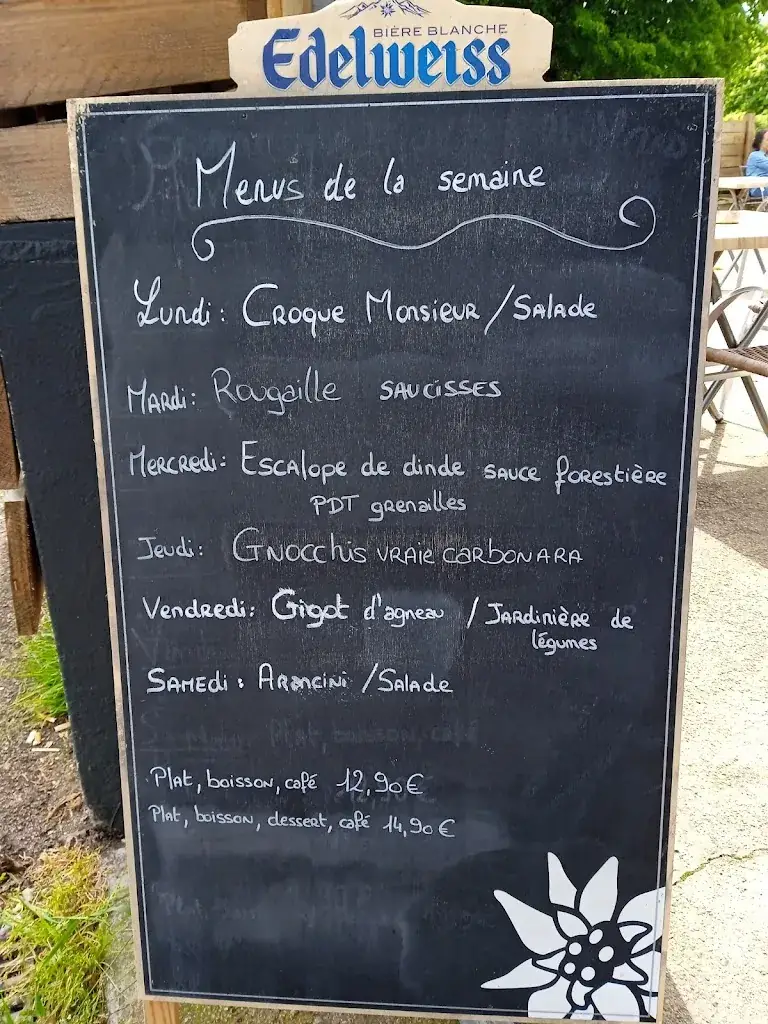 BIÈRE BLANCHE
Edelweiss
Menus de la semaine
Lundi : Croque Monsieur / Salade
Mardi : Rougaille saucisses
Mercredi : Escalope de dinde sauce forestière
PDT grenailles
Jeudi : Gnocchis vraie carbonara
Vendredi : Gigot d'agneau / Jardinière de
légumes
Samedi : Arancini / Salade
Plat, boisson, café 12,90€
Plat, boisson, dessert, café 14,90€